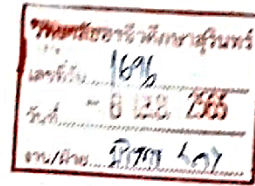 วิทยาลัยอาชีวศึกษาสุรินทร์
เลขที่รับ 1696
วันที่ - 6 เม.ย. 2565
งาน/ฝ่าย